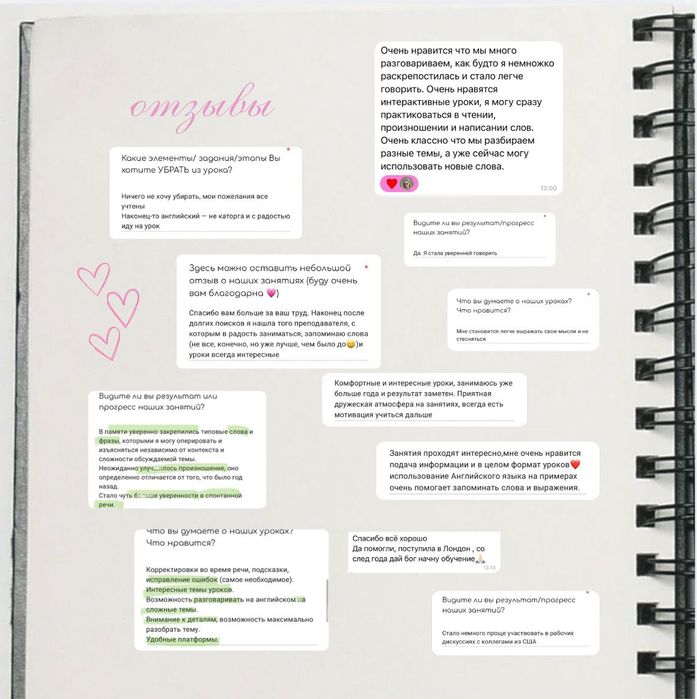 отзывы
Очень нравится что мы много
разговариваем, как будто я немножко
раскрепостилась и стало легче
говорить. Очень нравятся
интерактивные уроки, я могу сразу
практиковаться в чтении,
произношении и написании слов.
Очень классно что мы разбираем
разные темы, а уже сейчас могу
использовать новые слова.
13:00
Какие элементы/ задания/этапы Вы
хотите УБРАТЬ из урока?
*
Ничего не хочу убирать, мои пожелания все
учтены
Наконец-то английский — не каторга и с радостью
иду на урок
Видите ли вы результат/прогресс
наших занятий?
*
Да Я стала уверенней говорить
Здесь можно оставить небольшой
отзыв о наших занятиях (буду очень
вам благодарна 💗)
*
Спасибо вам больше за ваш труд. Наконец после
долгих поисков я нашла того преподавателя, с
которым в радость заниматься, запоминаю слова
(не все, конечно, но уже лучше, чем было до😄)и
уроки всегда интересные
Что вы думаете о наших уроках?
Что нравится?
*
Мне становится легче выражать свои мысли и не
стесняться
Комфортные и интересные уроки, занимаюсь уже
больше года и результат заметен. Приятная
дружеская атмосфера на занятиях, всегда есть
мотивация учиться дальше
Видите ли вы результат или
прогресс наших занятий?
В памяти уверенно закрепились типовые слова и
фразы, которыми я могу оперировать и
изъясняться независимо от контекста и
сложности обсуждаемой темы.
Неожиданно улучшилось произношение, оно
определенно отличается от того, что было год
назад.
Стало чуть больше уверенности в спонтанной
речи.
Занятия проходят интересно,мне очень нравится
подача информации и в целом формат уроков❤️
использование Английского языка на примерах
очень помогает запоминать слова и выражения.
Что вы думаете о наших уроках?
Что нравится?
Корректировки во время речи, подсказки,
исправление ошибок (самое необходимое).
Интересные темы уроков.
Возможность разговаривать на английском на
сложные темы.
Внимание к деталям, возможность максимально
разобрать тему.
Удобные платформы.
Спасибо всё хорошо
Да помогли, поступила в Лондон , со
след года дай бог начну обучение🙏🏻
13:13
Видите ли вы результат/прогресс
наших занятий?
*
Стало немного проще участвовать в рабочих
дискуссиях с коллегами из США